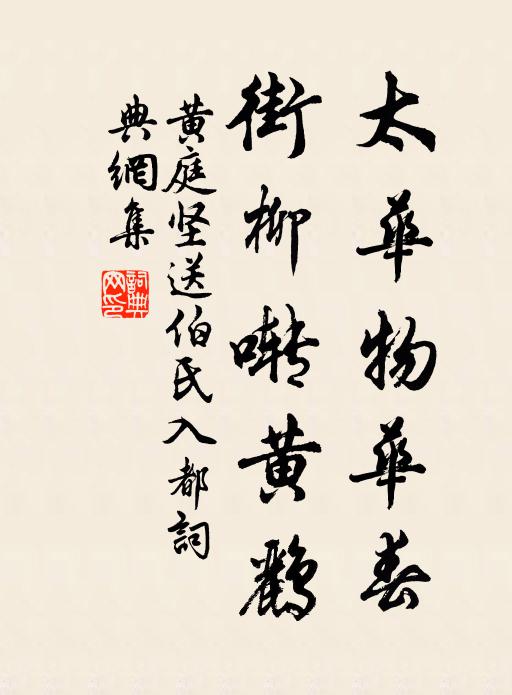 太華物華春
街柳囀黄鸝
黄庭坚送伯氏入都詞
典網集
詞典
网印